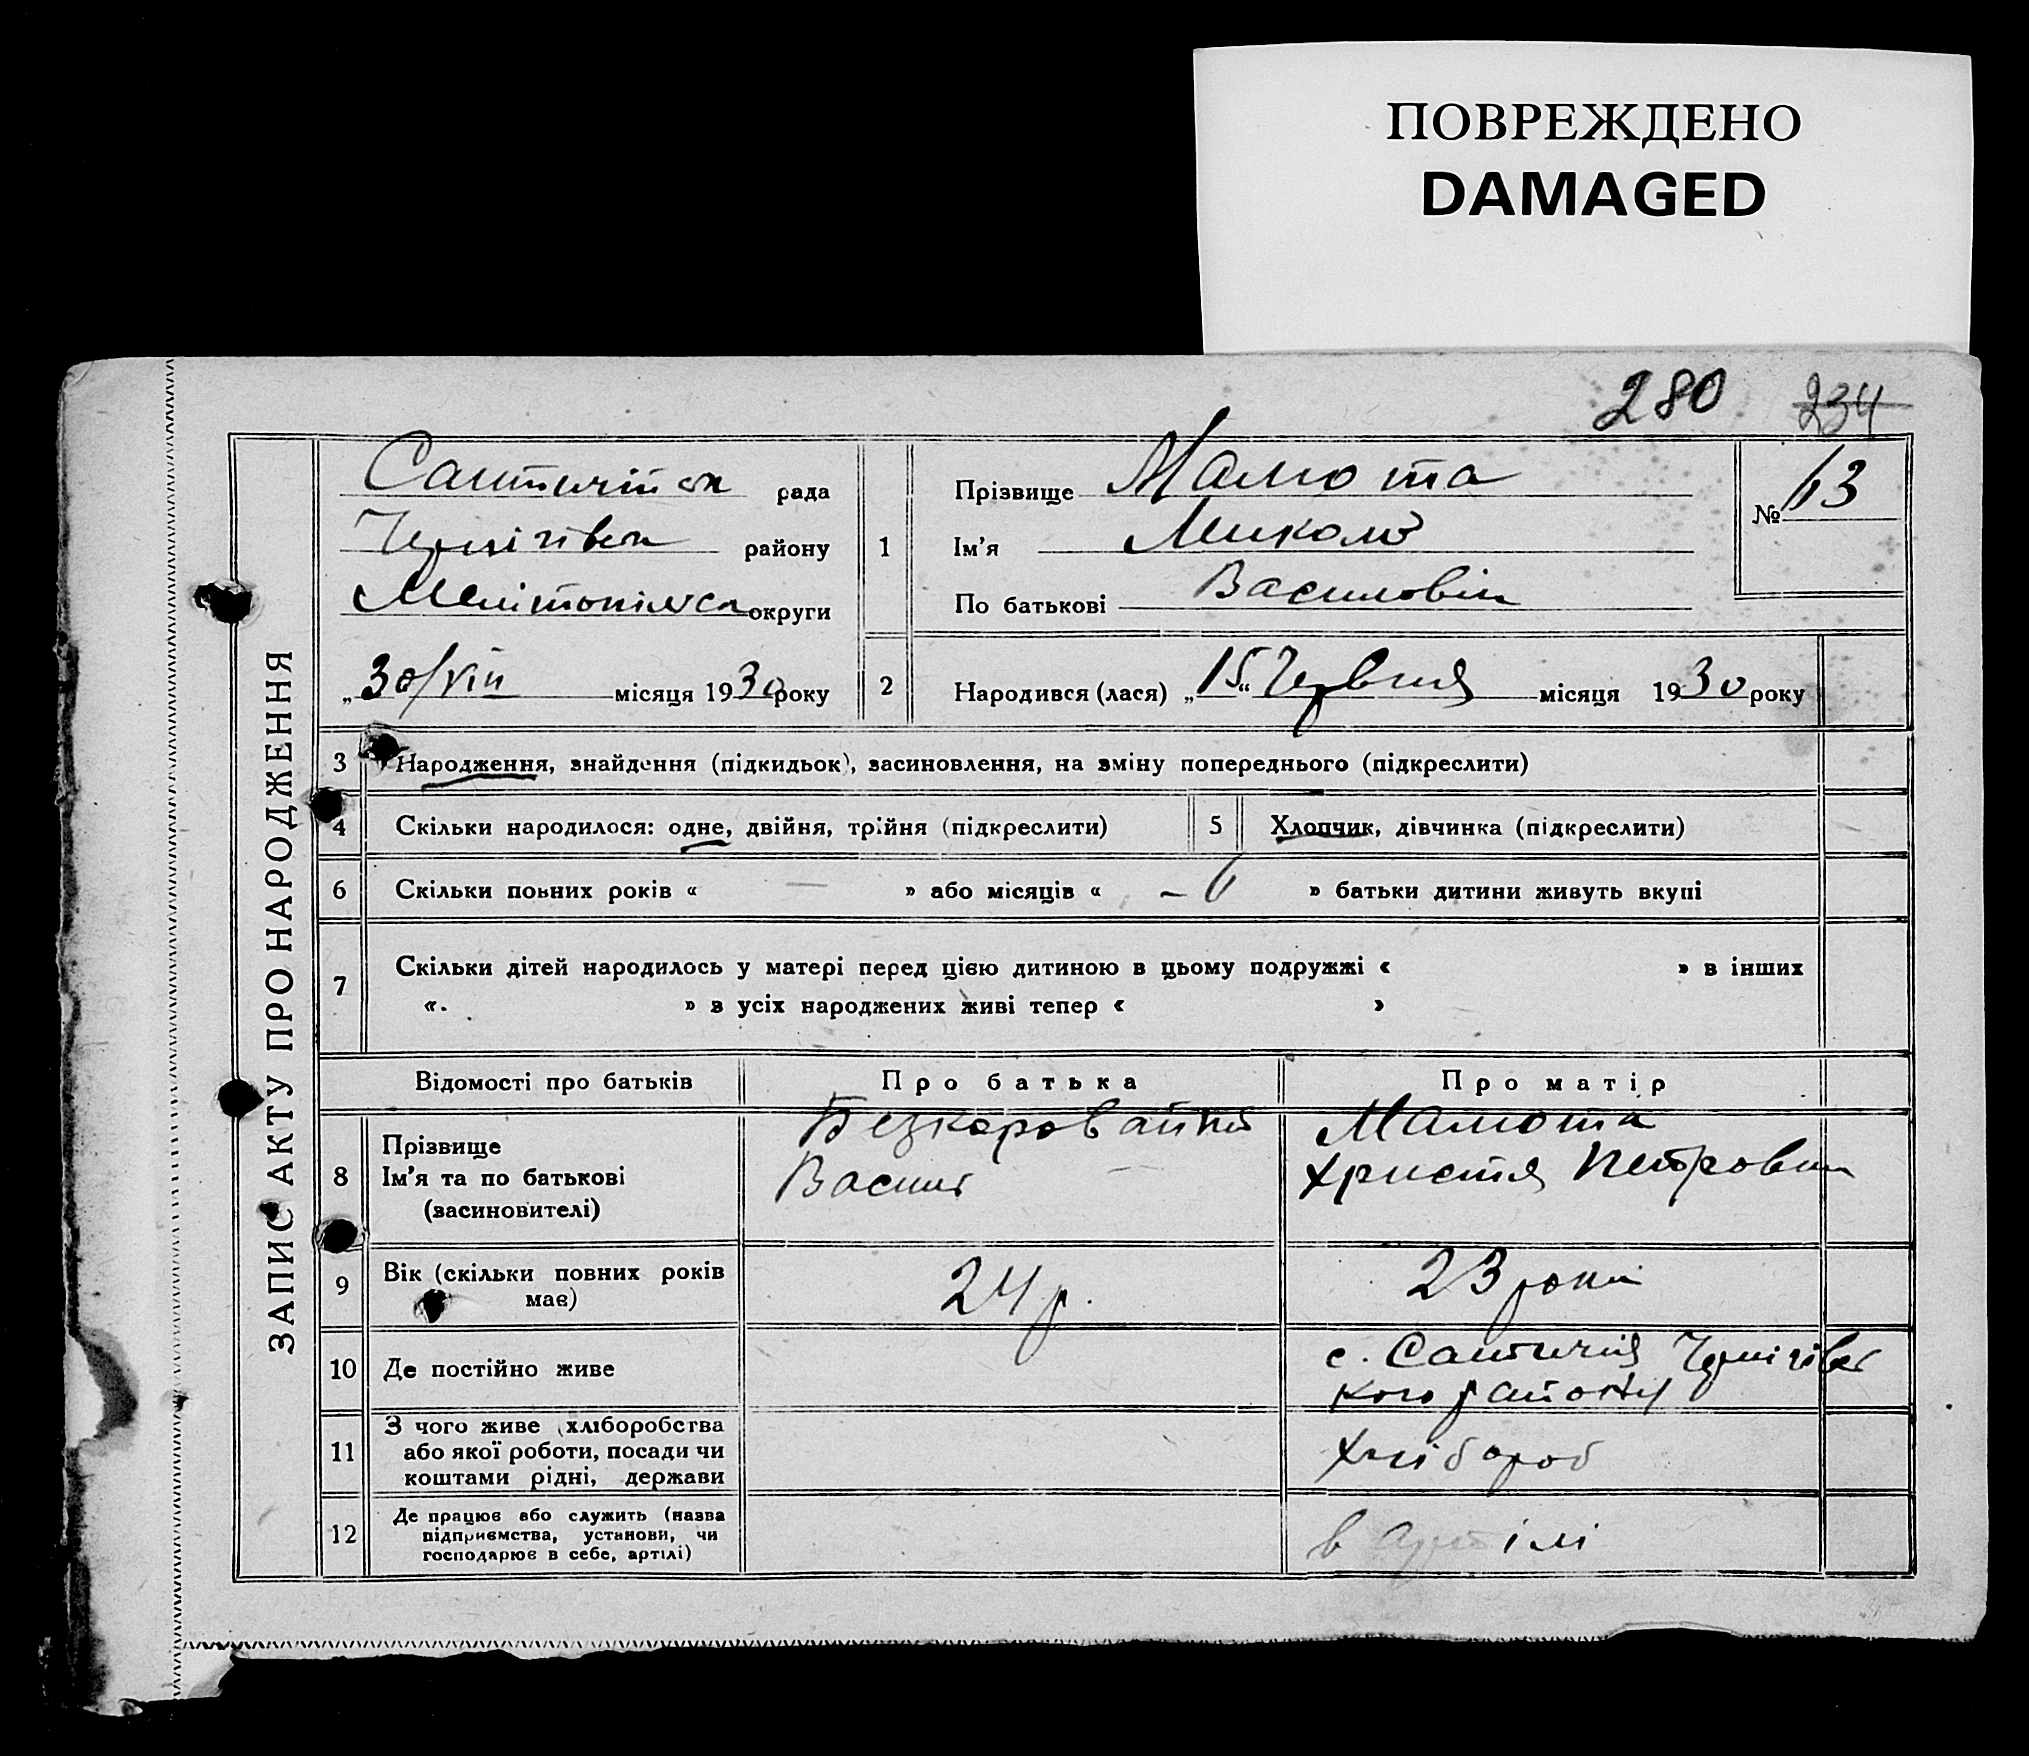 ПОВРЕЖДЕНО
DAMAGED
280 234
ЗАПИС АКТУ ПРО НАРОДЖЕННЯ
рада
району
округи
„30/VIII місяця 1930 року
1
Прізвище Малюта
Ім'я Микола
По батькові Василовіч
№ 63
2
Народився (лася) „15“ Червня місяця 1930 року
3 Народження, знайдення (підкидьок), засиновлення, на зміну попереднього (підкреслити)
4 Скільки народилося: одне, двійня, трійня (підкреслити) 5 Хлопчик, дівчинка (підкреслити)
6 Скільки повних років « — » або місяців « – 6 » батьки дитини живуть вкупі
7 Скільки дітей народилось у матері перед цією дитиною в цьому подружжі « » в інших
«. » з усіх народжених живі тепер « »
Відомості про батьків Про батька Про матір
8 Прізвище
Ім'я та по батькові
(засиновителі)
Безкоровайний
Васил
Малюта
Христя Петровна
9 Вік (скільки повних років
має)
24 р.
23 роки
10 Де постійно живе
с. Салтичія Чернігівс
кого району
11 З чого живе (хліборобства
або якої роботи, посади чи
коштами рідні, держави
Хлібороб
12 Де працює або служить (назва
підприємства, установи, чи
господарює в себе, артілі)
в артілі